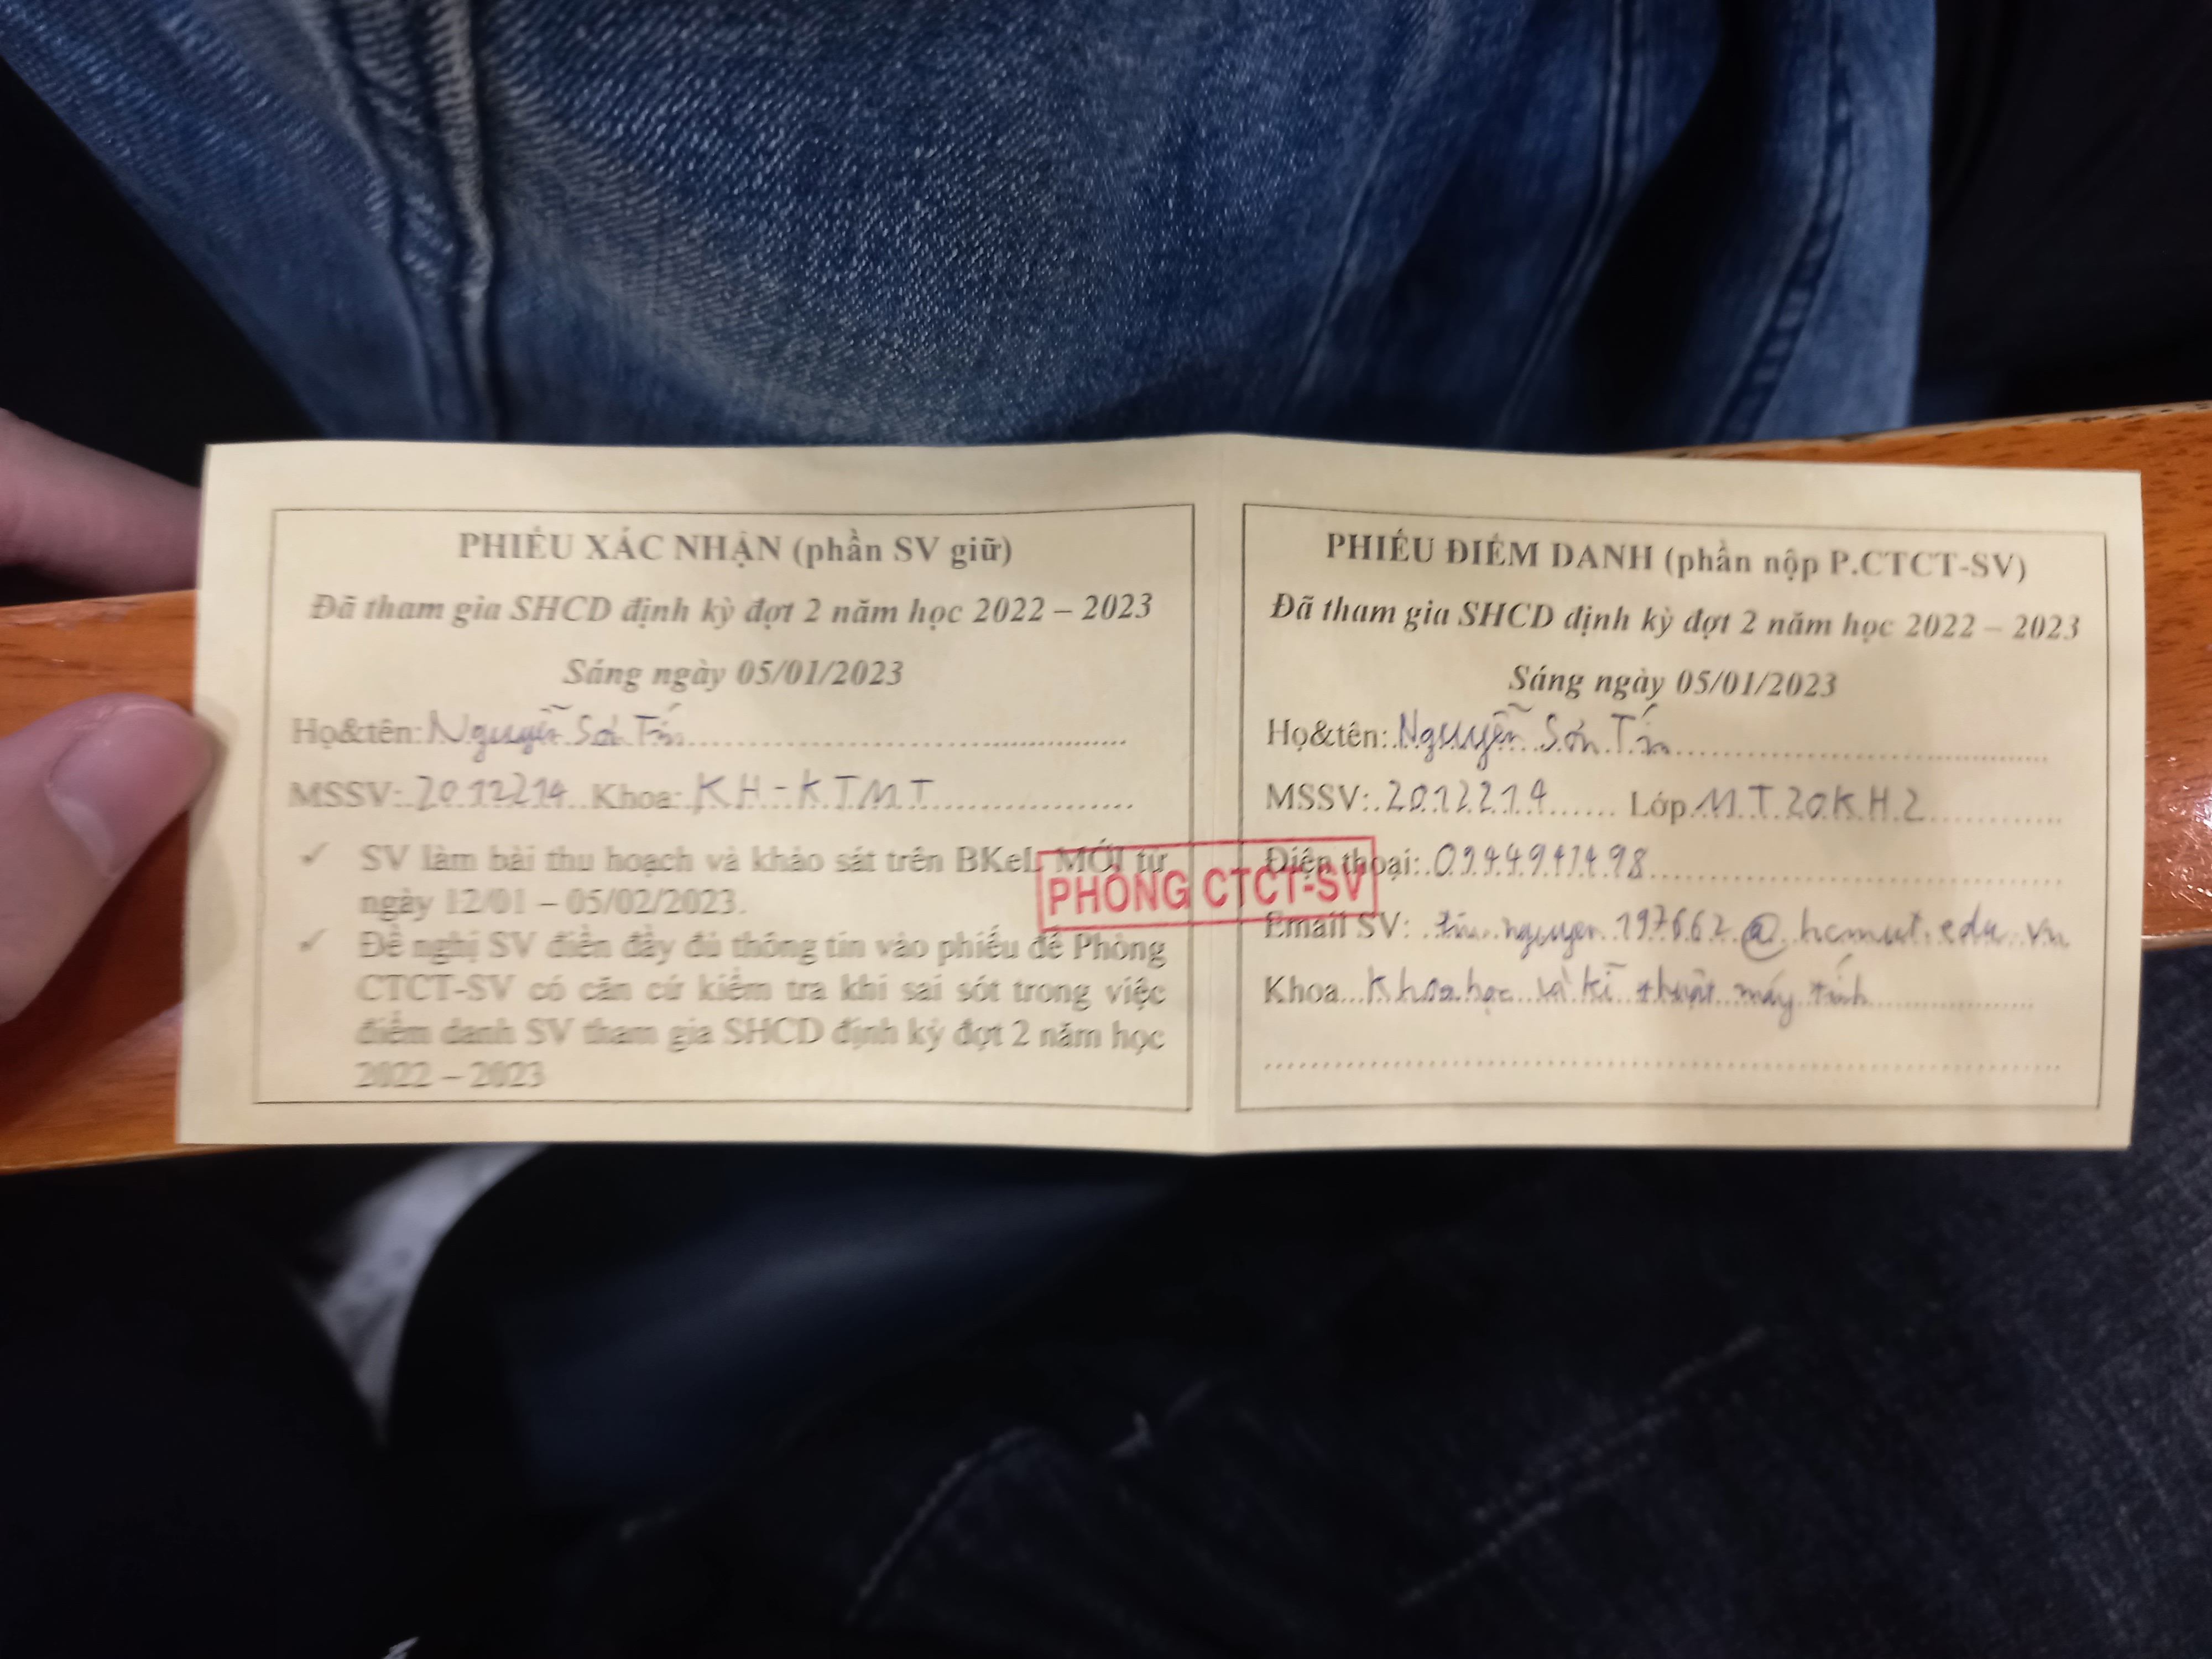 PHIẾU XÁC NHẬN (phần SV giữ)
Đã tham gia SHCD định kỳ đợt 2 năm học 2022 – 2023
Sáng ngày 05/01/2023
Họ&tên: Nguyễn Sơn Tín
MSSV: 2012214 Khoa: KH-KTMT
✓ SV làm bài thu hoạch và khảo sát trên BKeL MỚI từ
ngày 12/01 – 05/02/2023.
✓ Đề nghị SV điền đầy đủ thông tin vào phiếu để Phòng
CTCT-SV có căn cứ kiểm tra khi sai sót trong việc
điểm danh SV tham gia SHCD định kỳ đợt 2 năm học
2022 – 2023
PHÒNG CTCT-SV
PHIẾU ĐIỂM DANH (phần nộp P.CTCT-SV)
Đã tham gia SHCD định kỳ đợt 2 năm học 2022 – 2023
Sáng ngày 05/01/2023
Họ&tên: Nguyễn Sơn Tín
MSSV: 2012214 Lớp MT20KH2
Điện thoại:
Email SV: tin.nguyen197662@hcmut.edu.vn
Khoa Khoa học và kĩ thuật máy tính